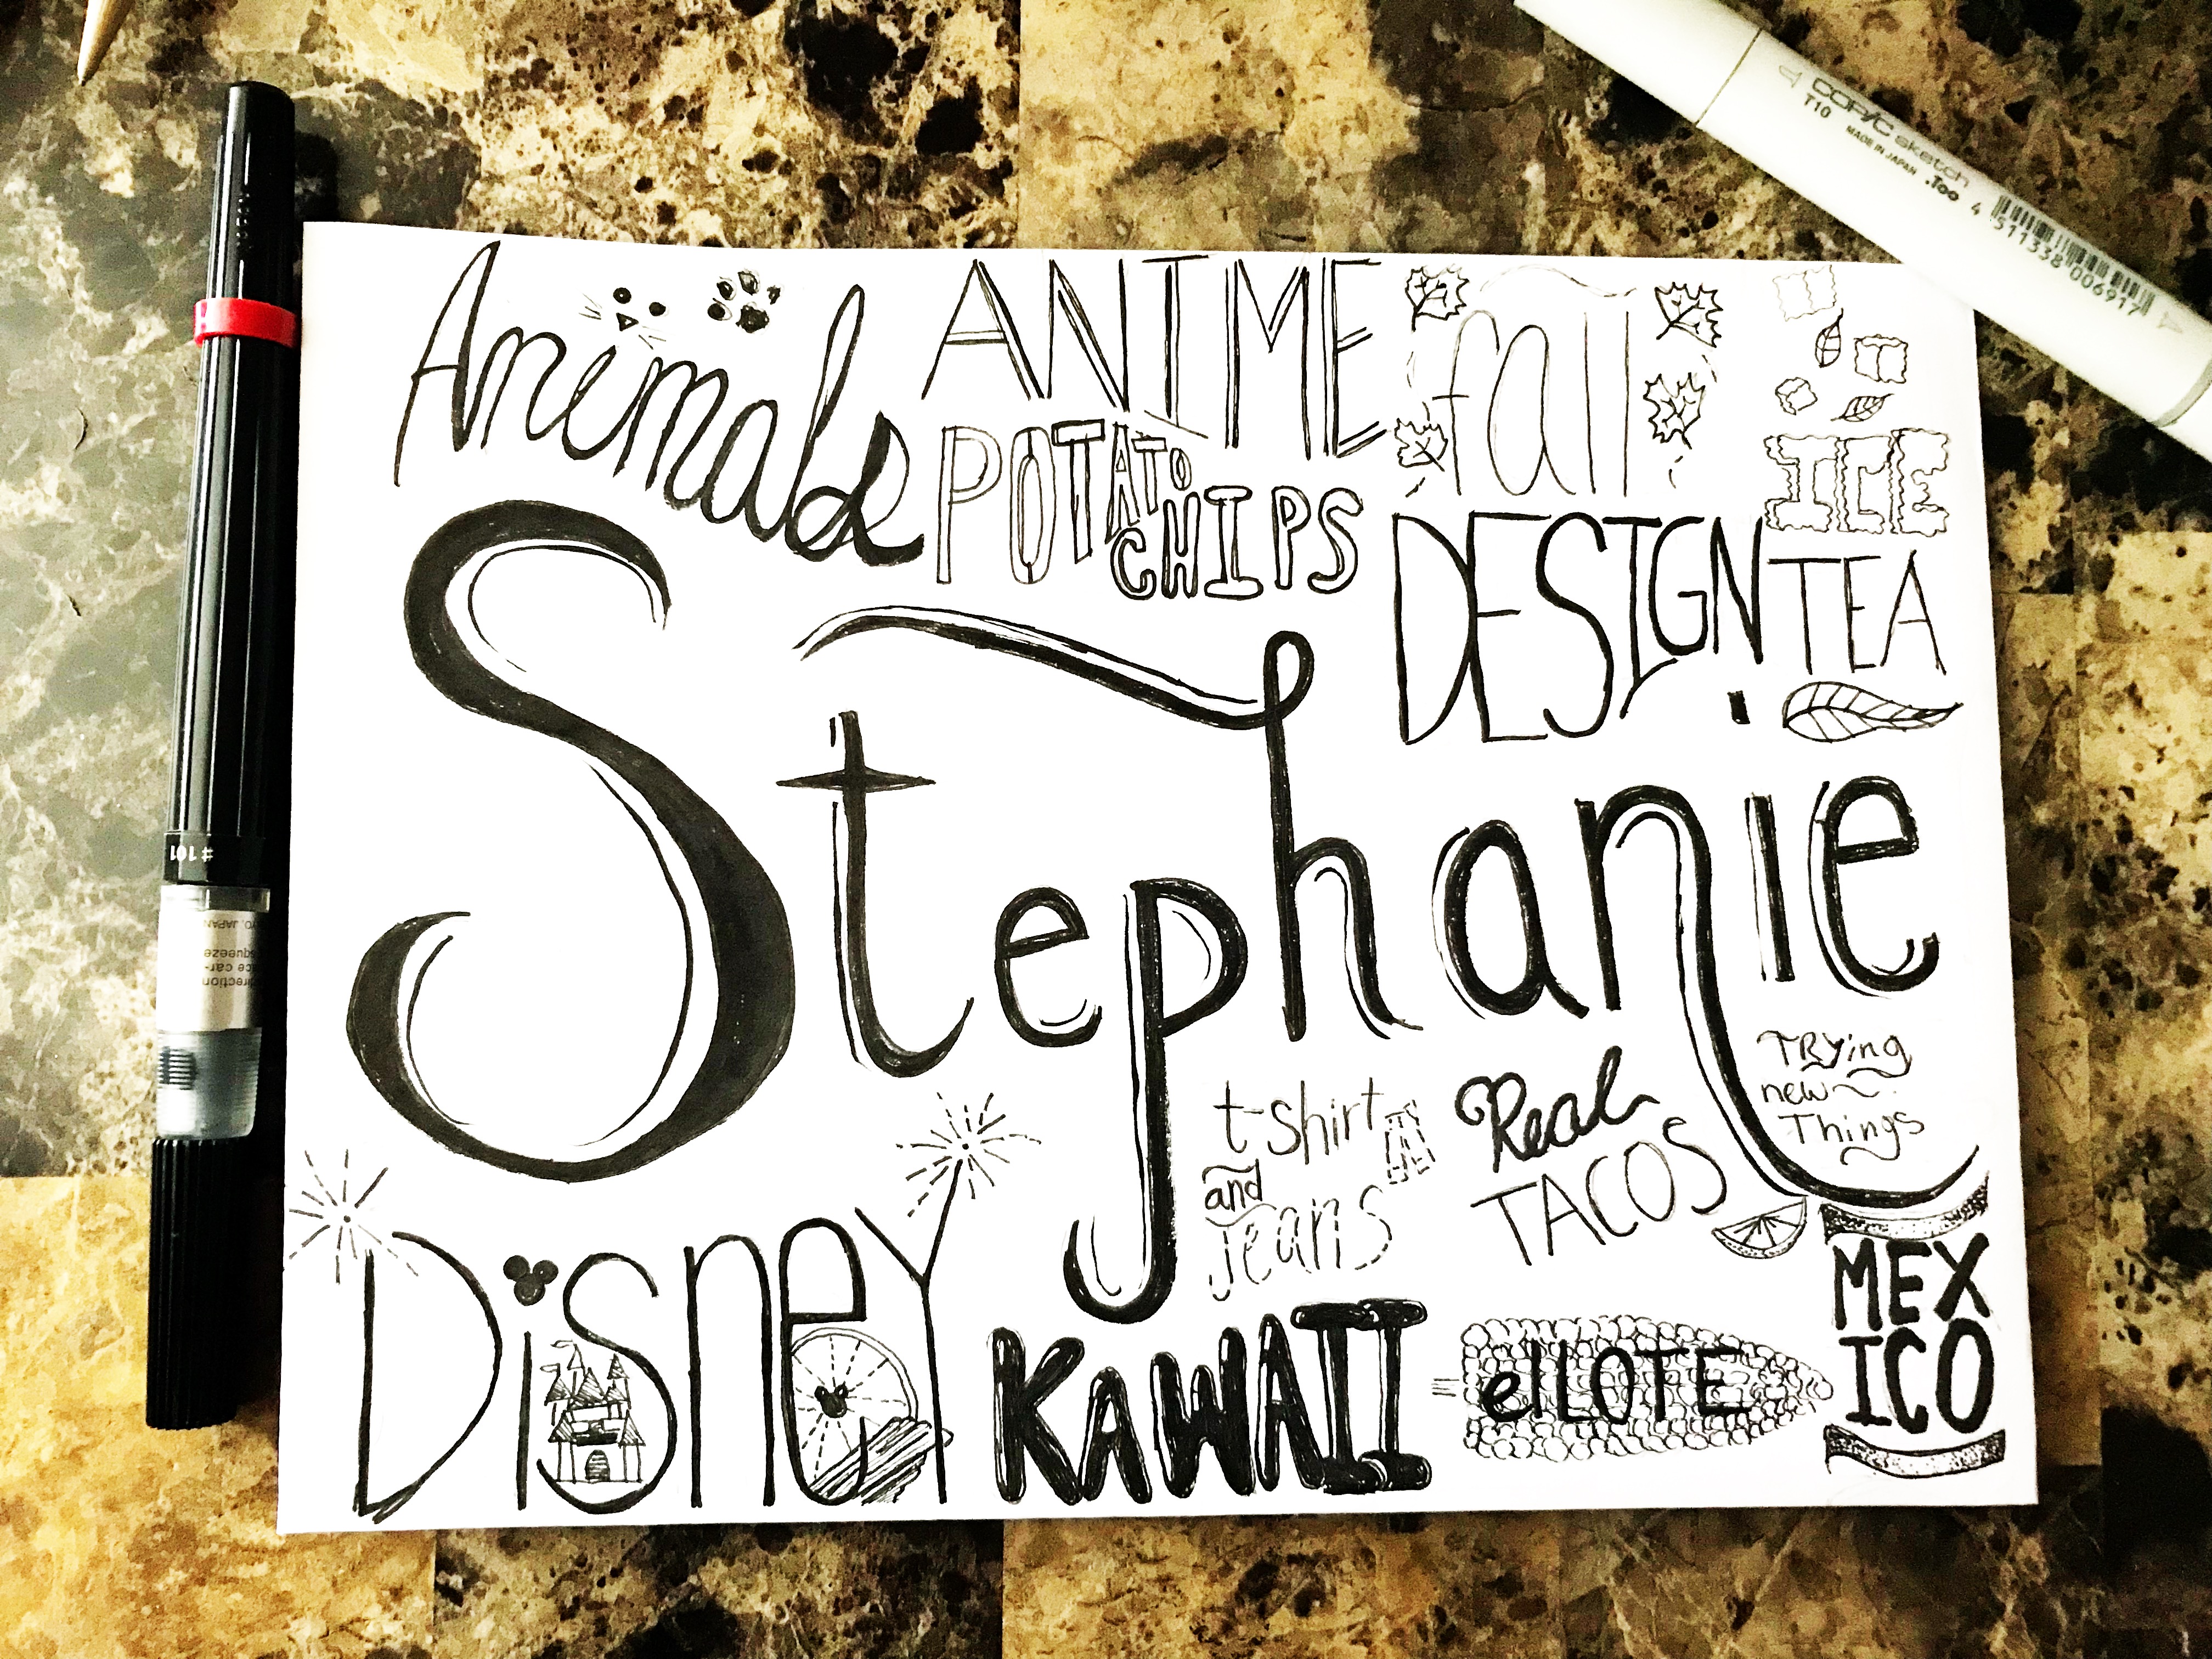 COPIC sketch
T10 MADE IN JAPAN .Too 4 511338 006917
Animals
ANIME
fall
POTATO
CHIPS
ICE
TEA
DESIGN
Stephanie
TRYing
new
Things
t-shirt
and
Jeans
Real
TACOS
DisneY
KAWAII
elLOTE
MEX
ICO
#101
YO, JAPAN
squeeze
ice car-
direction